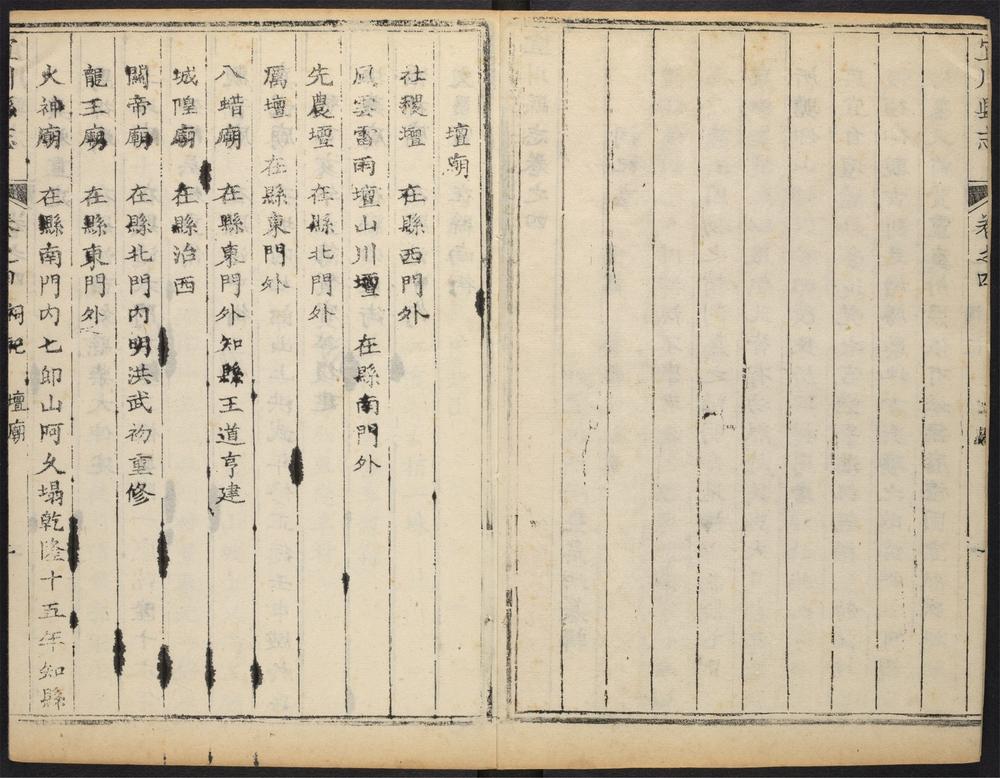 宜川縣志
卷之四
壇廟
社稷壇 在縣西門外
風雲雷雨壇山川壇 在縣南門外
先農壇 在縣北門外
厲壇 在縣東門外
八蜡廟 在縣東門外知縣王道亨建
城隍廟 在縣治西
關帝廟 在縣北門內明洪武初重修
龍王廟 在縣東門外
火神廟 在縣南門內七郎山阿久塌乾隆十五年知縣
祠祀 壇廟